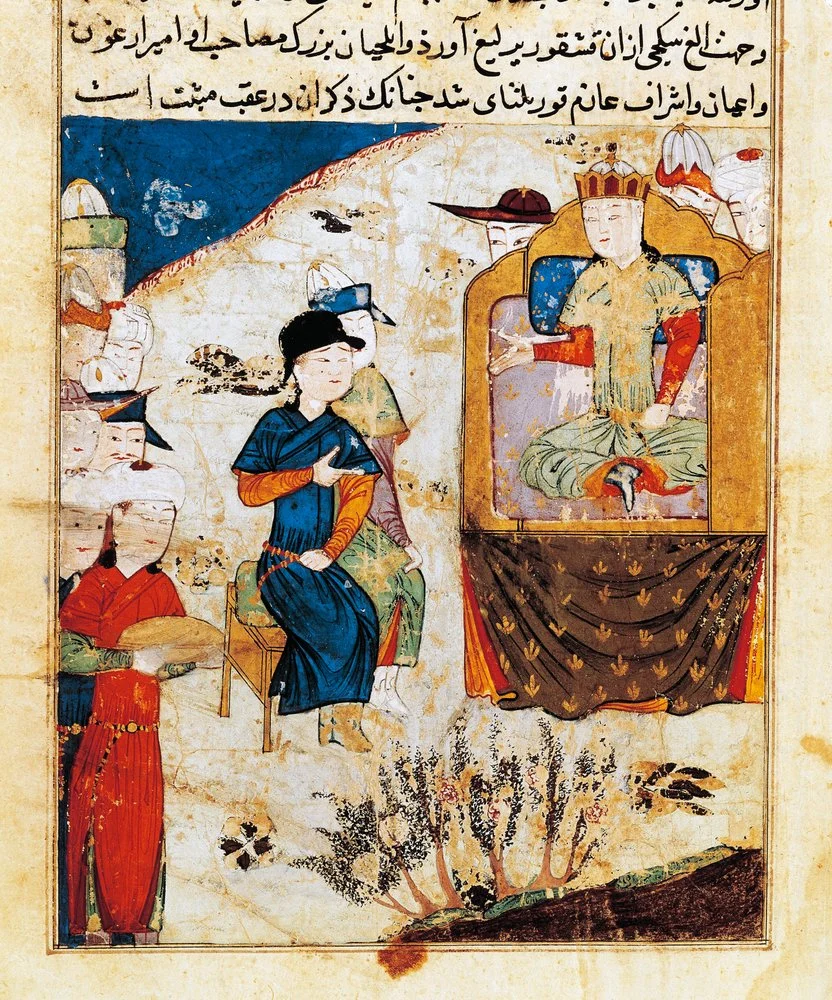 و جهت الغ بیتکچی ازان قشقور یرلیغ آورد و ایلچیان بزرگ مصاحب او امیر ارغون
واعیان واشراف عازم قوریلتای شد جنانک ذکر ان در عقب مثبت است